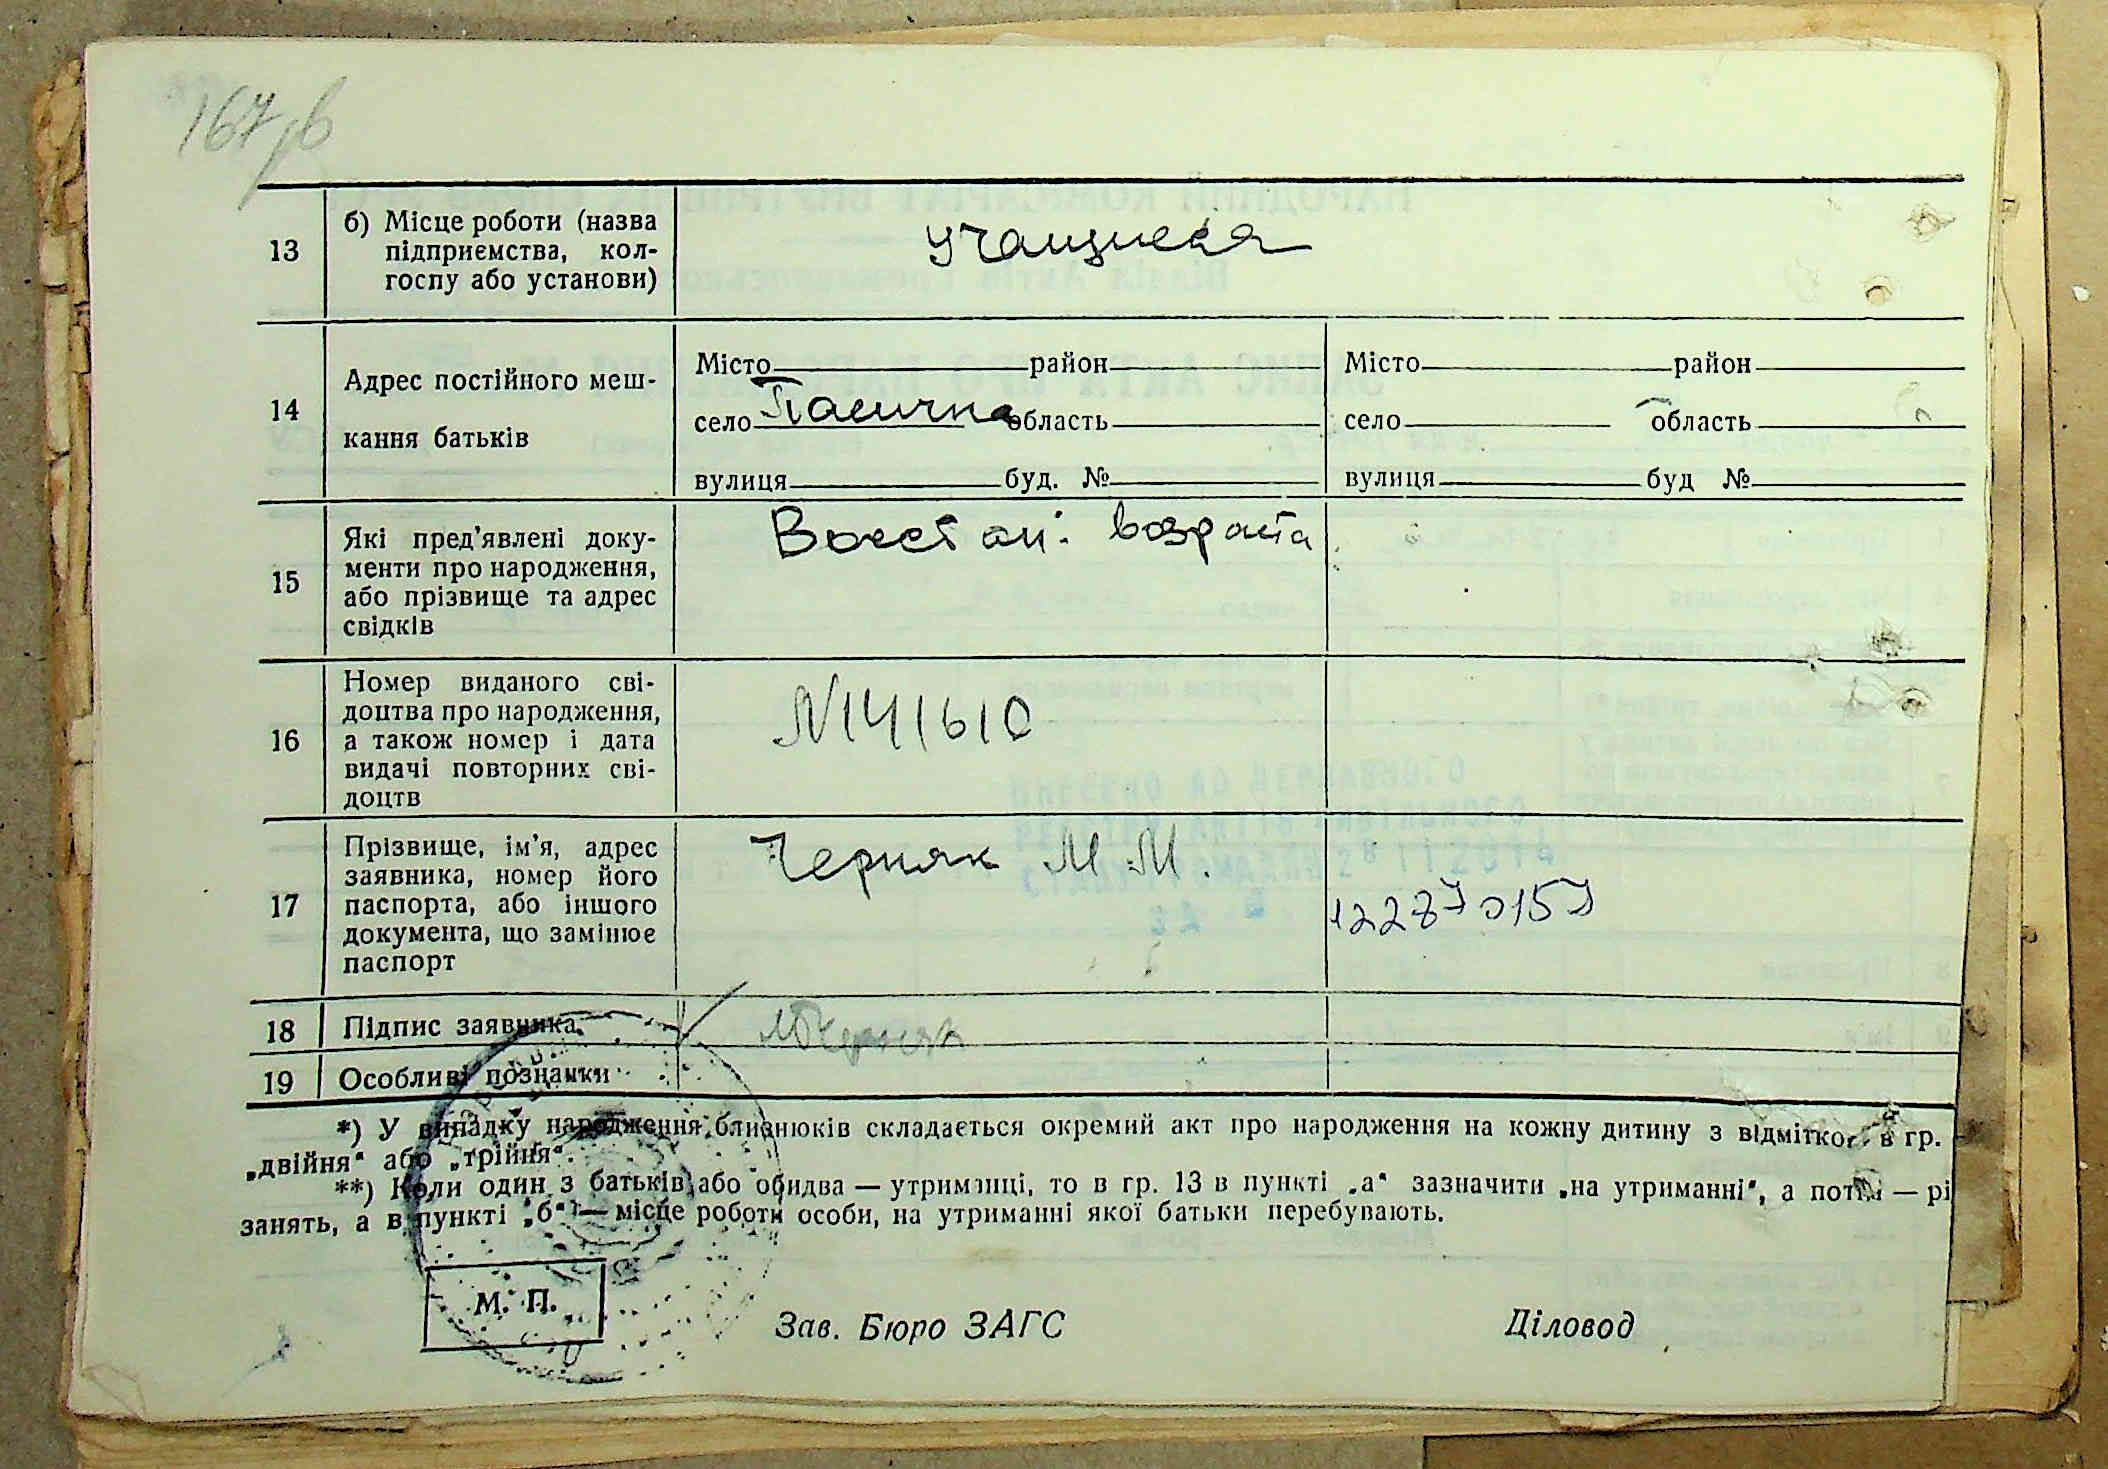 13
б) Місце роботи (назва
підприємства, кол-
госпу або установи)
учащиеся
14
Адрес постійного меш-
кання батьків
Місто район
село Пасична область
вулиця буд. №
Місто район
село область
вулиця буд №
15
Які пред'явлені доку-
менти про народження,
або прізвище та адрес
свідків
возраста
16
Номер виданого сві-
доцтва про народження,
а також номер і дата
видачі повторних сві-
доцтв
N141610
17
Прізвище, ім'я, адрес
заявника, номер його
паспорта, або іншого
документа, що замінює
паспорт
Черняк М. М.
18
Підпис заявника
19
Особливі познаики
*) У випадку народження близнюків складається окремий акт про народження на кожну дитину з відміткою в гр.
„двійня“ або „трійня“.
**) Коли один з батьків або обидва — утриманці, то в гр. 13 в пункті „а“ зазначити „на утриманні“, а потім — рі
занять, а в пункті „б“ — місце роботи особи, на утриманні якої батьки перебувають.
М. П.
Зав. Бюро ЗАГС
Діловод